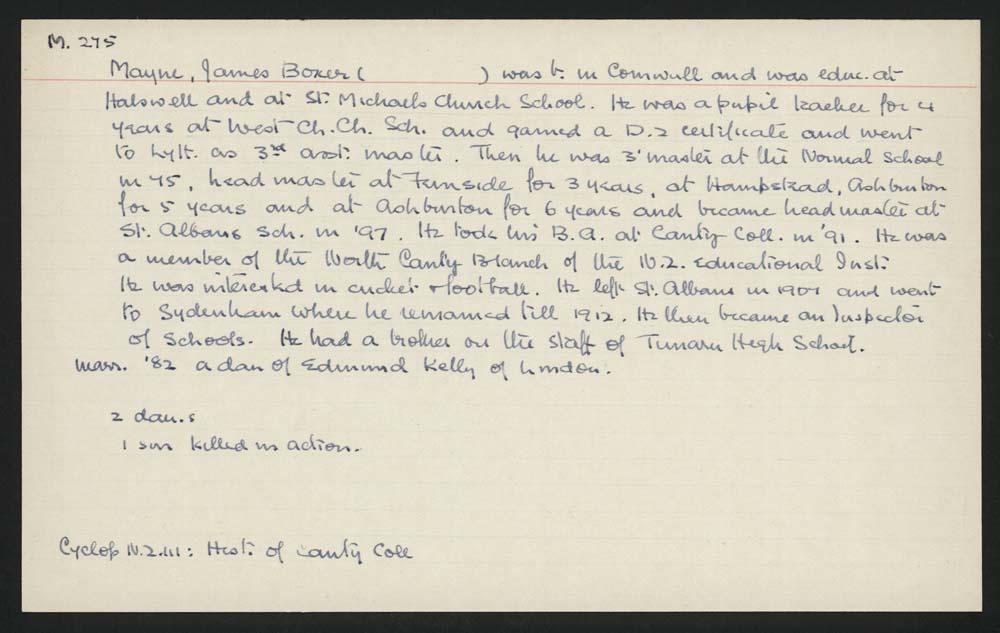 M. 275
Mayne, James Boxer ( ) was b. in Cornwall and was educ. at
Halswell and at St. Michaels Church School. He was a pupil teacher for 4
years at West Ch.Ch. Sch. and gained a D.2 certificate and went
to Lytt. as 3rd asst. master. Then he was 3' master at the Normal School
in '75, head master at Fernside for 3 years, at Hampstead, Ashburton
for 5 years and at Ashburton for 6 years and became headmaster at
St. Albans Sch. in '97. He took his B.A. at Canty Coll. in '91. He was
a member of the North Canty Branch of the N.Z. Educational Inst.
He was interested in cricket & football. He left St. Albans in 1907 and went
to Sydenham where he remained till 1912. He then became an Inspector
of Schools. He had a brother on the staff of Timaru High School.
marr. '82 a dau of Edmund Kelly of London.
2 dau.s
1 son killed in action.
Cyclop N.Z.III: Hist. of Canty Coll